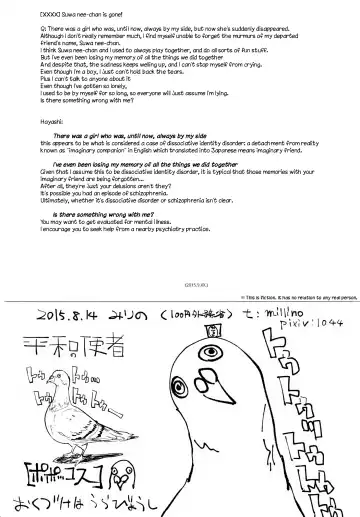 [XXXX] Suwa nee-chan is gone!
Q: There was a girl who was, until now, always by my side, but now she's suddenly disappeared.
Although I don't really remember much, I find myself unable to forget the murmurs of my departed
friend's name, Suwa nee-chan.
I think Suwa nee-chan and I used to always play together, and do all sorts of fun stuff.
But I've even been losing my memory of all the things we did together
And despite that, the sadness keeps welling up, and I can't stop myself from crying.
Even though I'm a boy, I just can't hold back the tears.
Plus I can't talk to anyone about it
Even though I've gotten so lonely,
I used to be by myself for so long, so everyone will just assume I'm lying.
Is there something wrong with me?
Hayashi:
There was a girl who was, until now, always by my side
this appears to be what is considered a case of dissociative identity disorder; a detachment from reality
known as "imaginary companion" in English which translated into Japanese means imaginary friend.
I've even been losing my memory of all the things we did together
Given that I assume this to be dissociative identity disorder, it is typical that those memories with your
imaginary friend are being forgotten...
After all, they're just your delusions aren't they?
It's possible you had an episode of schizophrenia.
Ultimately, whether it's dissociative disorder or schizophrenia isn't clear.
Is there something wrong me?
You may want to get evaluated for mental illness.
I encourage you to seek help from a nearby psychiatry practice.
(2015.9.01.)
※ This is fiction. It has no relation to any real person.
2015.8.14 みりの
t: millino
pixiv: 1044
平和使者
[ポポッコス]
おくづけはうらびょうし